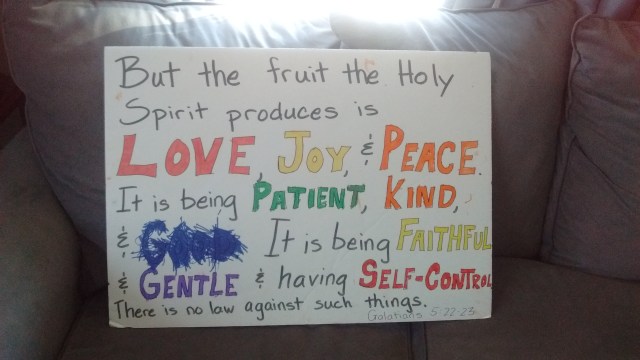 But the fruit the Holy
Spirit produces is
LOVE, JOY, & PEACE.
It is being PATIENT, KIND,
& GOOD It is being FAITHFUL
& GENTLE & having SELF-CONTROL
There is no law against such things.
Galatians 5:22-23